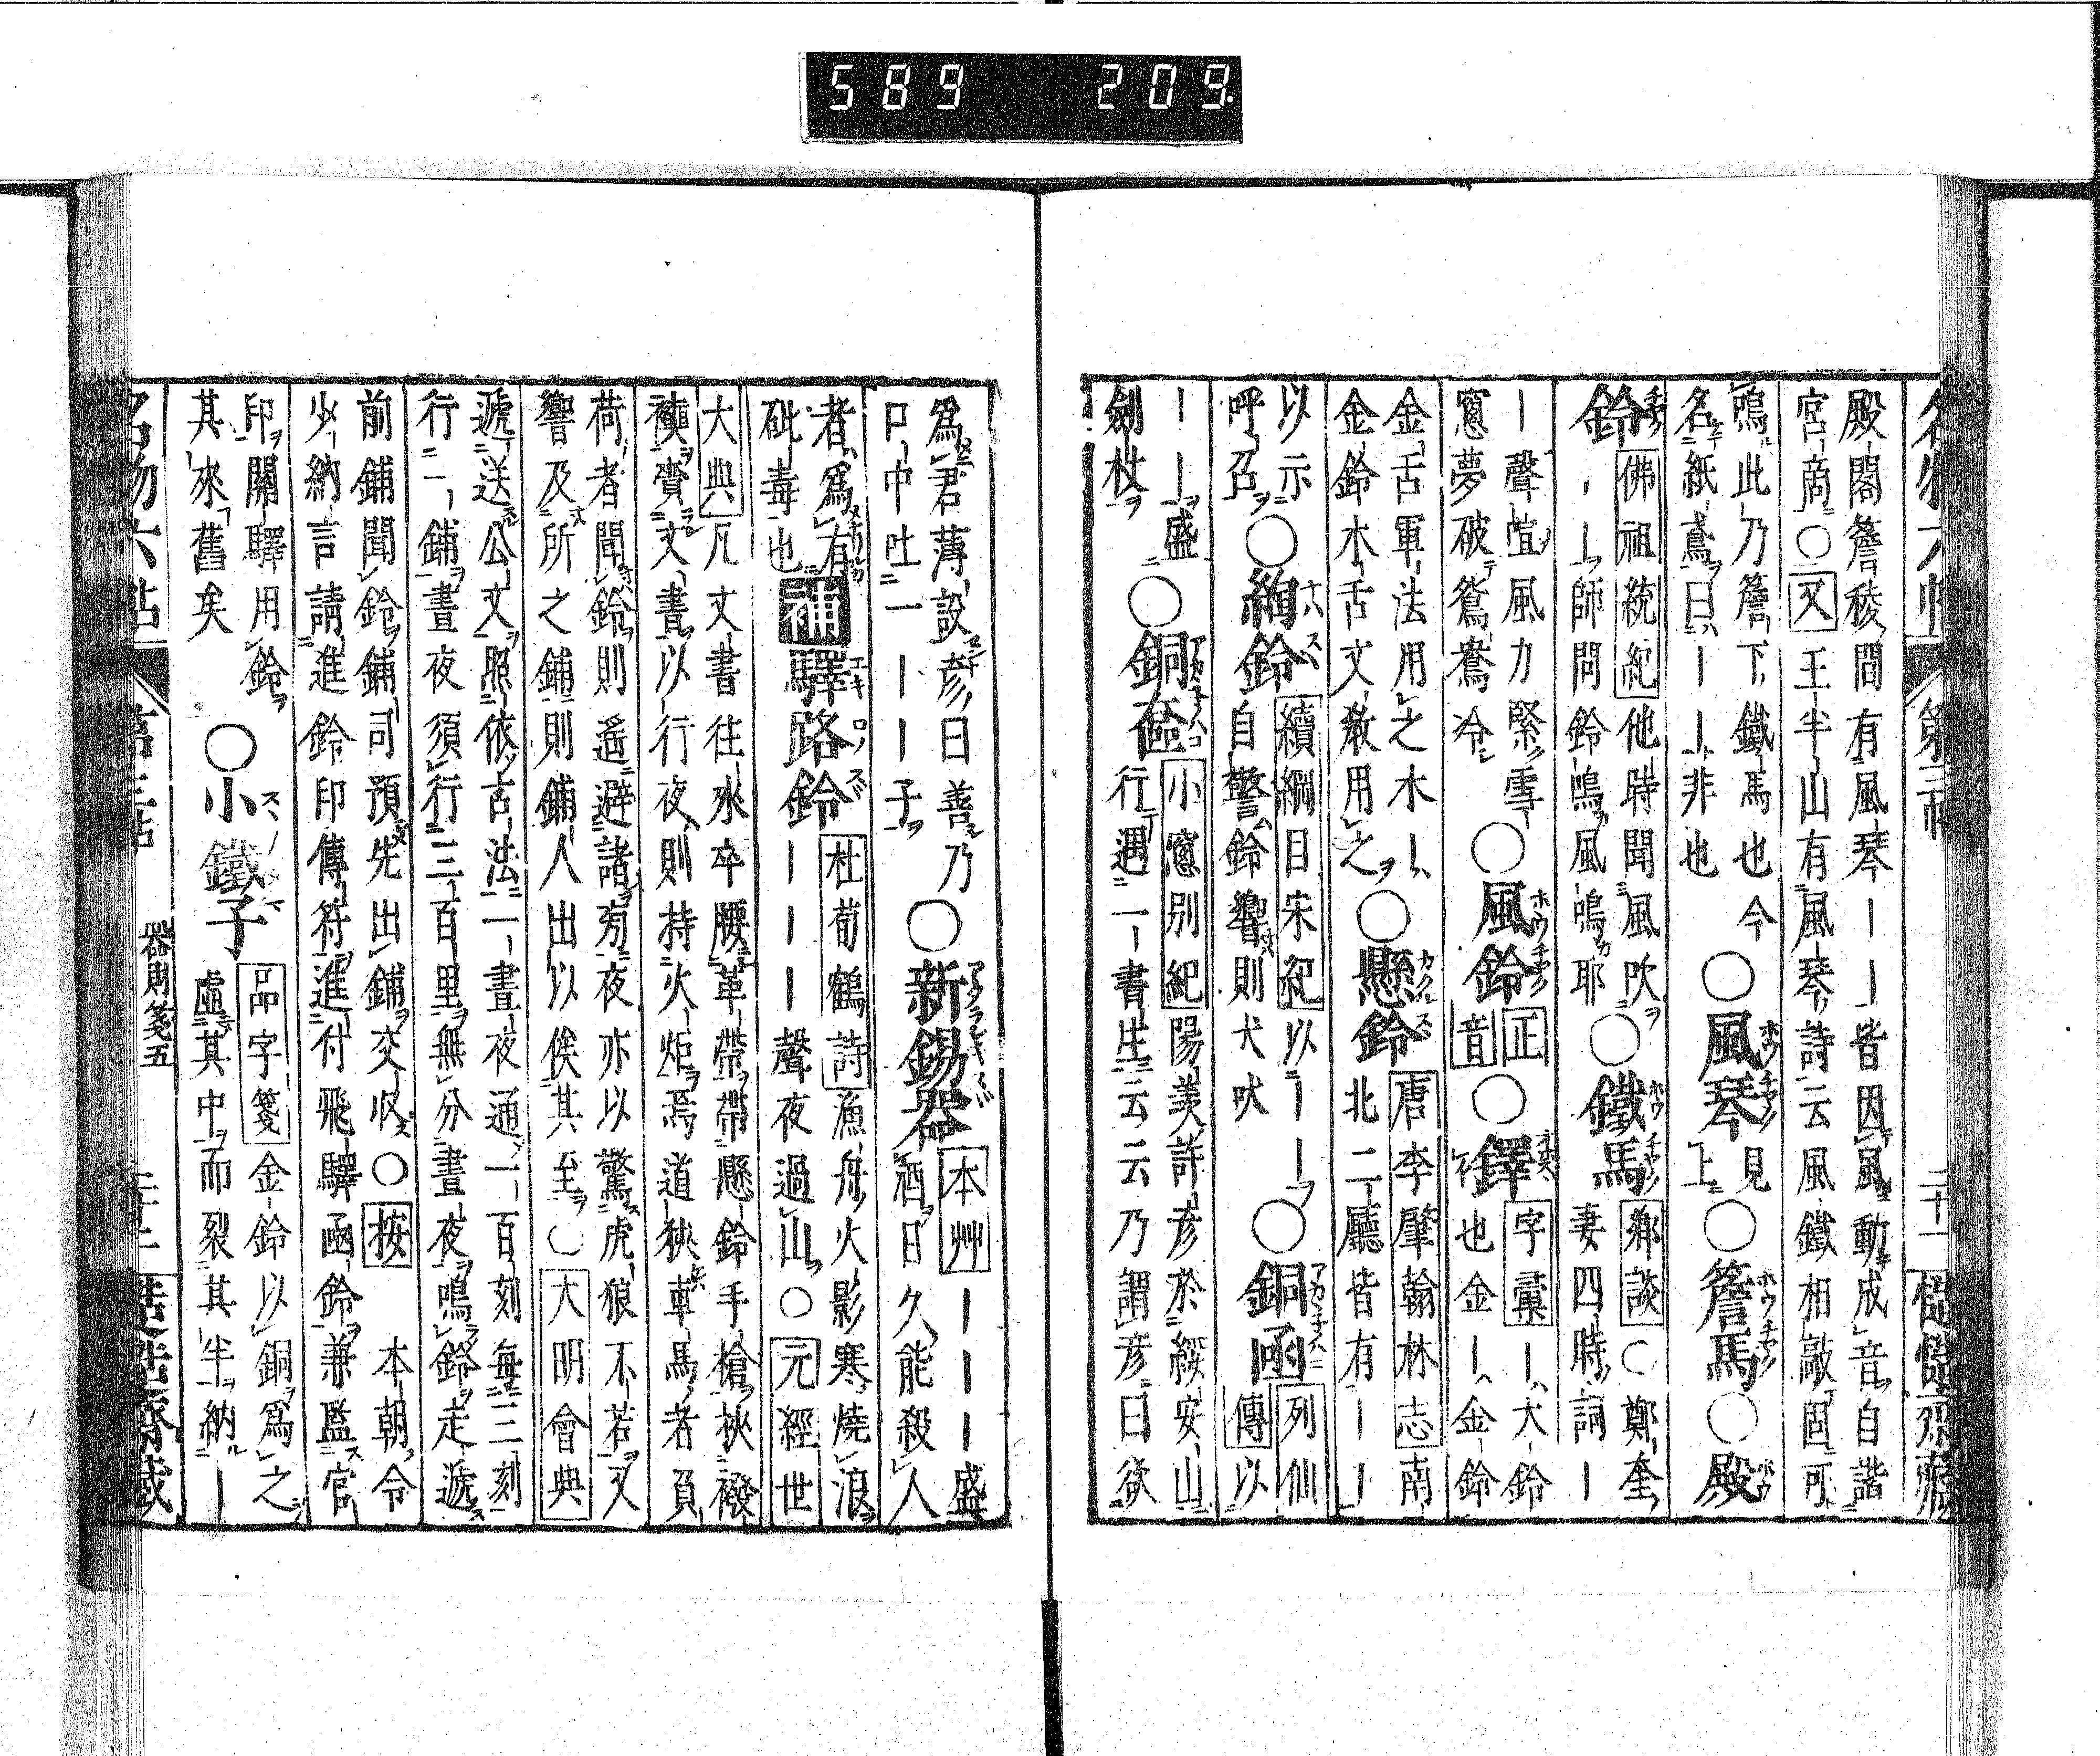 589 209
殿閣簷稜間有風琴ーー皆因風動成音自諧
宮商○又王半山有風琴詩云風鐵相敲固可
鳴此乃簷下鐵馬也今
名紙鳶曰ーー非也
○風琴見上○簷馬○殿
鈴
佛祖統紀他時聞風吹
ーー師問鈴鳴風鳴耶
○鐵馬
鄕談○鄭奎
妻四時詞ー
ー聲喧風力緊雪
窓夢破鴛鴦冷
○風鈴正音○鐸
字彙ー大鈴
也金ー金鈴
金舌軍法用之木ー
金鈴木舌文敎用之
○懸鈴
唐李肇翰林志南
北二廳皆有ーー
以示
呼召
○絢鈴
續綱目宋紀以ーー
自警鈴響則犬吠
○銅函
列仙
傳以
ーー盛
劍杖
○銅
小窓別紀陽羨許彥於綏安山
行遇一書生云云乃謂彥曰欲
爲君薄設彥曰善乃
口中吐一ーー子
○新錫器
本艸ーーー盛
酒日久能殺人
者爲有
砒毒也
補驛路鈴
杜荀鶴詩漁舟火影寒燒浪
ーーー聲夜過山○元經世
大典凡文書往來卒腰革帶帶懸鈴手槍挾襏
襫賫文書以行夜則持火炬焉道狹車馬者負
荷者聞鈴則遥避諸旁夜亦以驚虎狼不若又
響及所之鋪則鋪人出以俟其至○大明會典
遞送公文照依古法一晝夜通一百刻每三刻
行一鋪晝夜須行三百里無分晝夜鳴鈴走遞
前鋪聞鈴鋪司預先出鋪交收○按本朝令
少納言請進鈴印傳符進付飛驛函鈴兼監官
印關驛用鈴
其來舊矣
○小鐵子
品字箋金鈴以銅爲之
虛其中而裂其半納ー
器財箋五